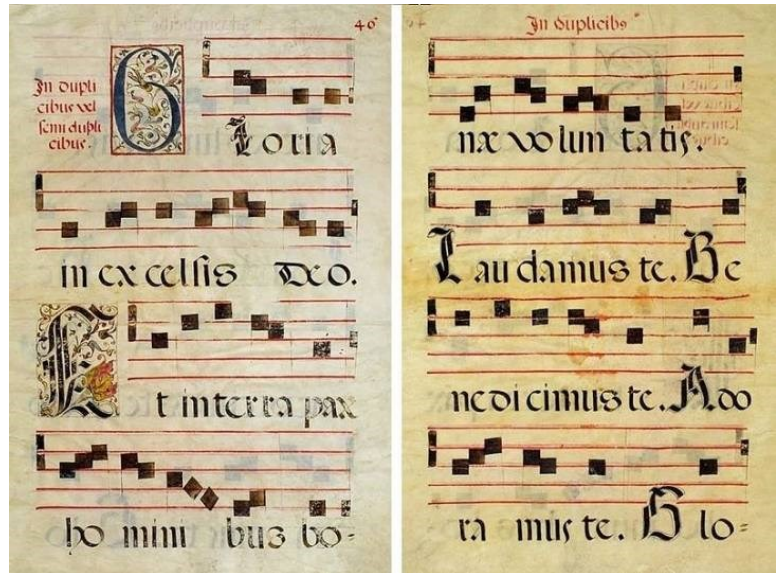 46
In dupli
cibus vel
semi dupli
cibus.
Gloria
in ex celsis Deo.
Et in terra pax
ho mini bus bo-
In duplicibꝰ
næ volun tatis.
Lau damus te. Be
ne di cimus te. Ado
ra mus te. Glo=